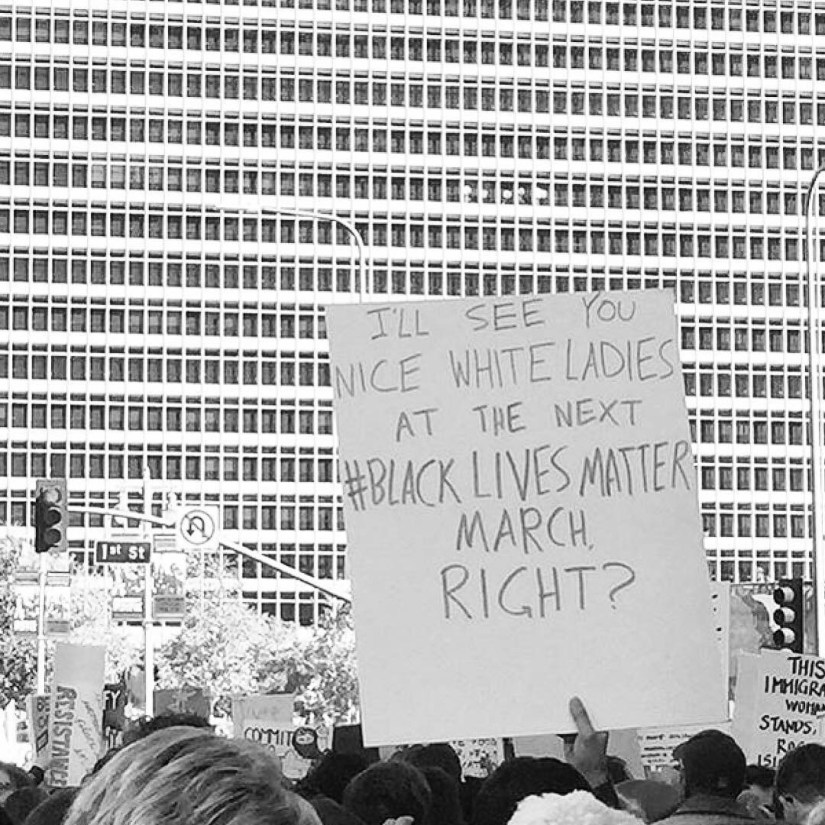 I'LL SEE YOU
NICE WHITE LADIES
AT THE NEXT
#BLACK LIVES MATTER
MARCH.
RIGHT?
1st St
RESISTANCE
COMMIT
THIS
IMMIGRA
WOMAN
STANDS,